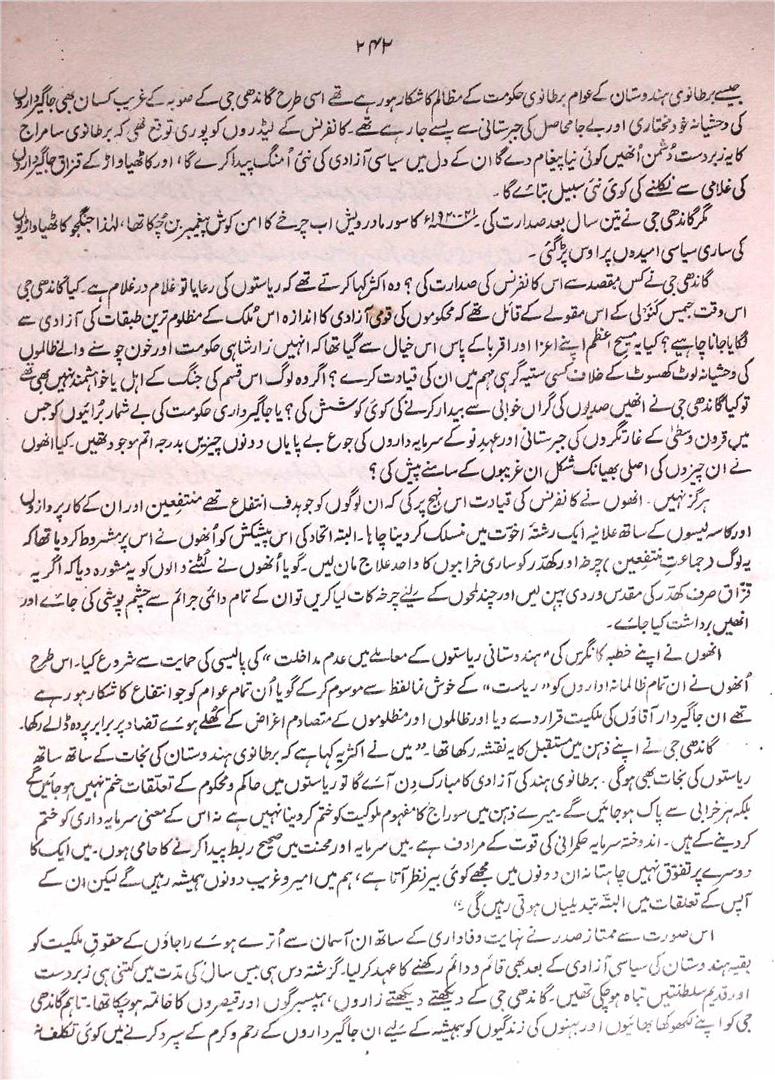 ۲۴۲
جیسے برطانوی ہندوستان کے عوام برطانوی حکومت کے مظالم کا شکار ہو رہے تھے اسی طرح گاندھی جی کے صوبہ کے غریب کسان بھی جاگیرداروں
کی وحشیانہ خود مختاری اور بے جا محاصل کی جبرستانی سے پسے جا رہے تھے۔ کانفرنس کے لیڈروں کو پوری توقع تھی کہ برطانوی سامراج
کا یہ زبردست دشمن اُنھیں کوئی نیا پیغام دے گا ان کے دل میں سیاسی آزادی کی نئی اُمنگ پیدا کرے گا، اور کاٹھیاواڑ کے قزاق جاگیرداروں
کی غلامی سے نکلنے کی کوئی نئی سبیل بتائے گا۔
مگر گاندھی جی نے تین سال بعد صدارت کی۔ ۲۱-۱۹۲۰ء کا سورما درویش اب چرخے کا امن کوش پیغمبر بن چکا تھا، لہٰذا جنگجو کاٹھیاواڑیوں
کی ساری سیاسی امیدوں پر اوس پڑ گئی۔
گاندھی جی نے کس مقصد سے اس کانفرنس کی صدارت کی؟ وہ اکثر کہا کرتے تھے کہ ریاستوں کی رعایا تو غلام در غلام ہے۔ کیا گاندھی جی
اس وقت جیمس کنولی کے اس مقولے کے قائل تھے کہ محکوموں کی قومی آزادی کا اندازہ اس مُلک کے مظلوم ترین طبقات کی آزادی سے
لگایا جانا چاہیے؟ کیا یہ مسیح اعظم اپنے اعزا اور اقربا کے پاس اس خیال سے گیا تھا کہ انہیں زار شاہی حکومت اور خون چوسنے والے ظالموں
کی وحشیانہ لوٹ کھسوٹ کے خلاف کسی ستیہ گرہی مہم میں ان کی قیادت کرے؟ اگر وہ لوگ اس قسم کی جنگ کے اہل یا خواہشمند نہیں بھی تھے
تو کیا گاندھی جی نے انھیں صدیوں کی گراں خوابی سے بیدار کرنے کی کوئی کوشش کی؟ یا جاگیرداری حکومت کی بے شمار بُرائیوں کو جس
میں قرون وسطیٰ کے غارتگروں کی جبرستانی اور عہدِ نو کے سرمایہ داروں کی جوع بے پایاں دونوں چیزیں بدرجہ اتم موجود تھیں۔ کیا اُنھوں
نے ان چیزوں کی اصلی بھیانک شکل ان غریبوں کے سامنے پیش کی؟
ہرگز نہیں۔ انھوں نے کانفرنس کی قیادت اس نہج پر کی کہ ان لوگوں کو جو ہدف انتفاع تھے منتفعین اور ان کے کارپردازوں
اور کاسہ لیسوں کے ساتھ علانیہ ایک رشتۂ اخوت میں منسلک کر دینا چاہا۔ البتہ اتحاد کی اس پیشکش کو اُنھوں نے اس پر مشروط کر دیا تھا کہ
یہ لوگ (جماعتِ منتفعین) چرخہ اور کھدّر کو ساری خرابیوں کا واحد علاج مان لیں۔ گویا اُنھوں نے لُٹنے والوں کو یہ مشورہ دیا کہ اگر یہ
قزاق صرف کھدّر کی مقدس وردی پہن لیں اور چند لمحوں کے لیئے چرخہ کات لیا کریں تو ان کے تمام دائمی جرائم سے چشم پوشی کی جائے اور
انھیں برداشت کیا جائے۔
انھوں نے اپنے خطبہ کانگرس کی "ہندوستانی ریاستوں کے معاملے میں عدم مداخلت" کی پالیسی کی حمایت سے شروع کیا۔ اس طرح
اُنھوں نے ان تمام ظالمانہ اداروں کو "ریاست" کے خوش نما لفظ سے موسوم کر کے گویا اُن تمام عوام کو جو انتفاع کا شکار ہو رہے
تھے ان جاگیردار آقاؤں کی ملکیت قرار دے دیا اور ظالموں اور مظلوموں کے متصادم اغراض کے کُھلے ہوئے تضاد پر برابر پردہ ڈالے رکھا۔
گاندھی جی نے اپنے ذہن میں مستقبل کا یہ نقشہ رکھا تھا۔ "میں نے اکثر یہ کہا ہے کہ برطانوی ہندوستان کی نجات کے ساتھ ساتھ
ریاستوں کی نجات بھی ہوگی۔ برطانوی ہند کی آزادی کا مبارک دِن آئے گا تو ریاستوں میں حاکم و محکوم کے تعلقات ختم نہیں ہو جائیں گے
بلکہ ہر خرابی سے پاک ہو جائیں گے۔ میرے ذہن میں سوراج کا مفہوم ملوکیت کو ختم کر دینا نہیں ہے نہ اس کے معنی سرمایہ داری کو ختم
کر دینے کے ہیں۔ اندوختہ سرمایہ حکمرانی کی قوت کے مرادف ہے۔ میں سرمایہ اور محنت میں صحیح ربط پیدا کرنے کا حامی ہوں۔ میں ایک کا
دوسرے پر تفوق نہیں چاہتا نہ ان دونوں میں مجھے کوئی بیر نظر آتا ہے، ہم میں امیر و غریب دونوں ہمیشہ رہیں گے لیکن ان کے
آپس کے تعلقات میں البتہ تبدیلیاں ہوتی رہیں گی۔"
اس صورت سے ممتاز صدر نے نہایت وفاداری کے ساتھ ان آسمان سے اُترے ہوئے راجاؤں کے حقوقِ ملکیت کو
بقیہ ہندوستان کی سیاسی آزادی کے بعد بھی قائم و دائم رکھنے کا عہد کر لیا۔ گزشتہ دس ہی بیس سال کی مدّت میں کتنی ہی زبردست
اور قدیم سلطنتیں تباہ ہو چکی تھیں۔ گاندھی جی کے دیکھتے دیکھتے زاروں، ہیپسبرگوں اور قیصروں کا خاتمہ ہو چکا تھا۔ تاہم گاندھی
جی کو اپنے لکھوکھا بھائیوں اور بہنوں کی زندگیوں کو ہمیشہ کے لیئے ان جاگیرداروں کے رحم و کرم کے سپرد کرنے میں کوئی تکلف نہ